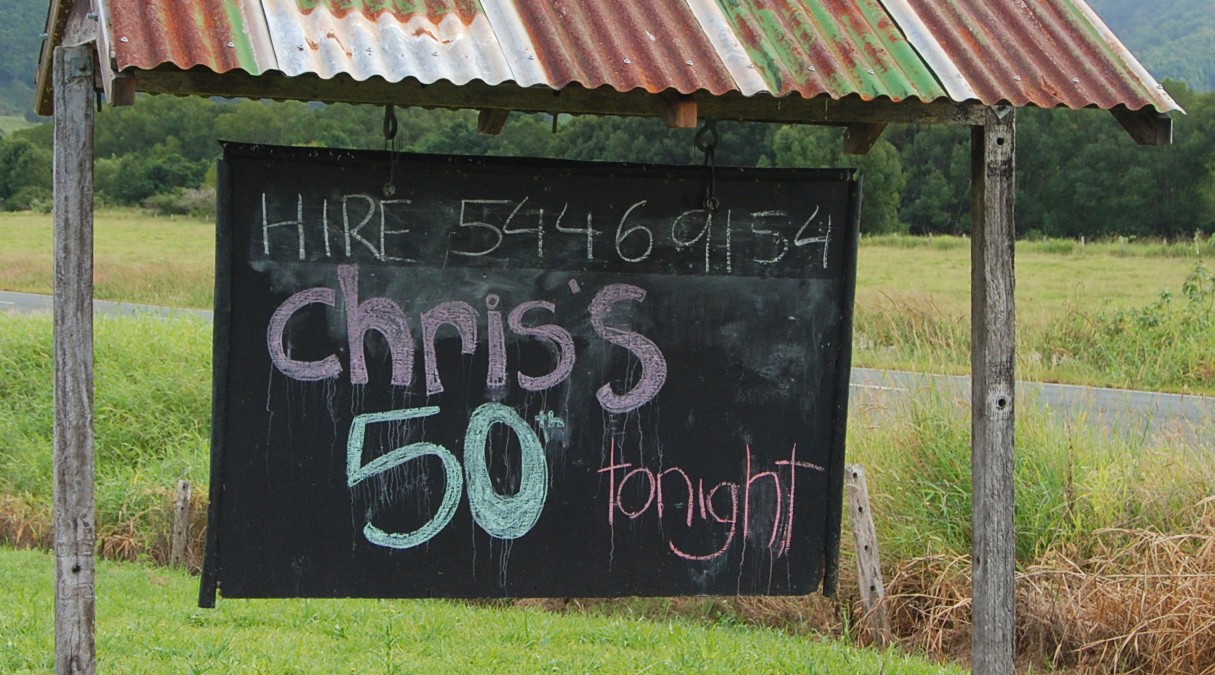 HIRE 5446 9154
chris's
50th
tonight